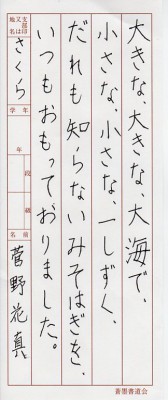 大きな、大きな、大海で、
小さな、小さな、一しずく、
だれも知らないみそはぎを、
いつもおもっておりました。
支部印又は地名
さくら
学年
年
段級
名前
菅野花真
書墨書道会